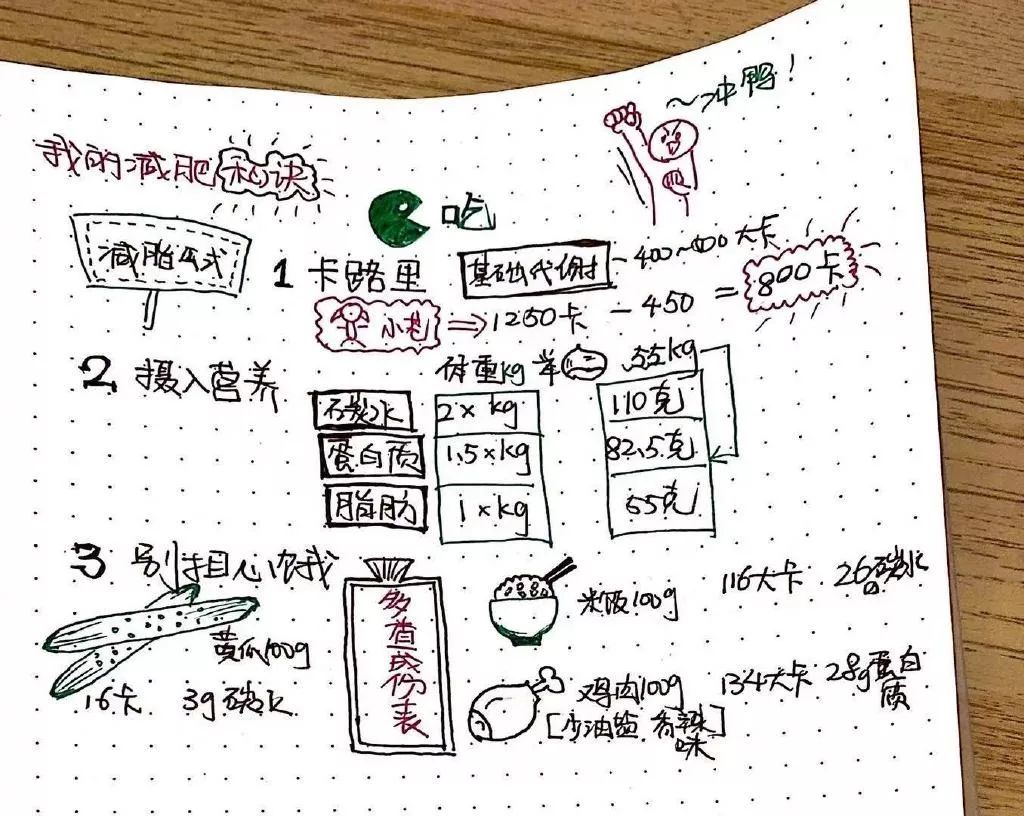 ~冲鸭!
我的减肥秘诀
吃
减脂公式
1 卡路里 基础代谢 -400~600大卡
小艺 ⇒ 1250卡 - 450 = 800卡
2 摄入营养 体重kg 举 55kg
碳水 2×kg 110克
蛋白质 1.5×kg 82.5克
脂肪 1×kg 55克
3 别担心依我
多查成份表
米饭100g 116大卡 26g碳水
黄瓜100g
16卡 3g碳水
鸡肉100g 134大卡 28g蛋白质
[少油盐 香辣味]